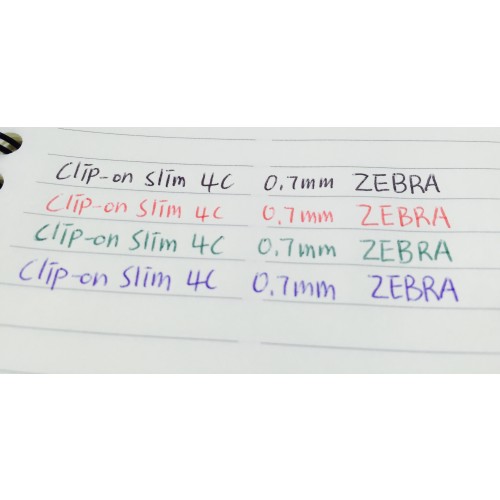 Clip-on Slim 4C 0.7mm ZEBRA
Clip-on Slim 4C 0.7mm ZEBRA
Clip-on Slim 4C 0.7mm ZEBRA
Clip-on Slim 4C 0.7mm ZEBRA